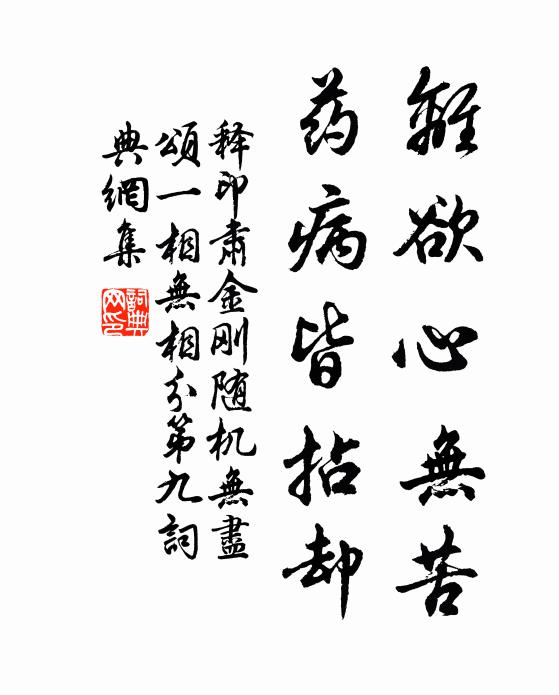 離欲心無苦
药病皆拈却
释印肃金刚随机無盡
頌一相無相分第九詞
典網集
詞典
网印